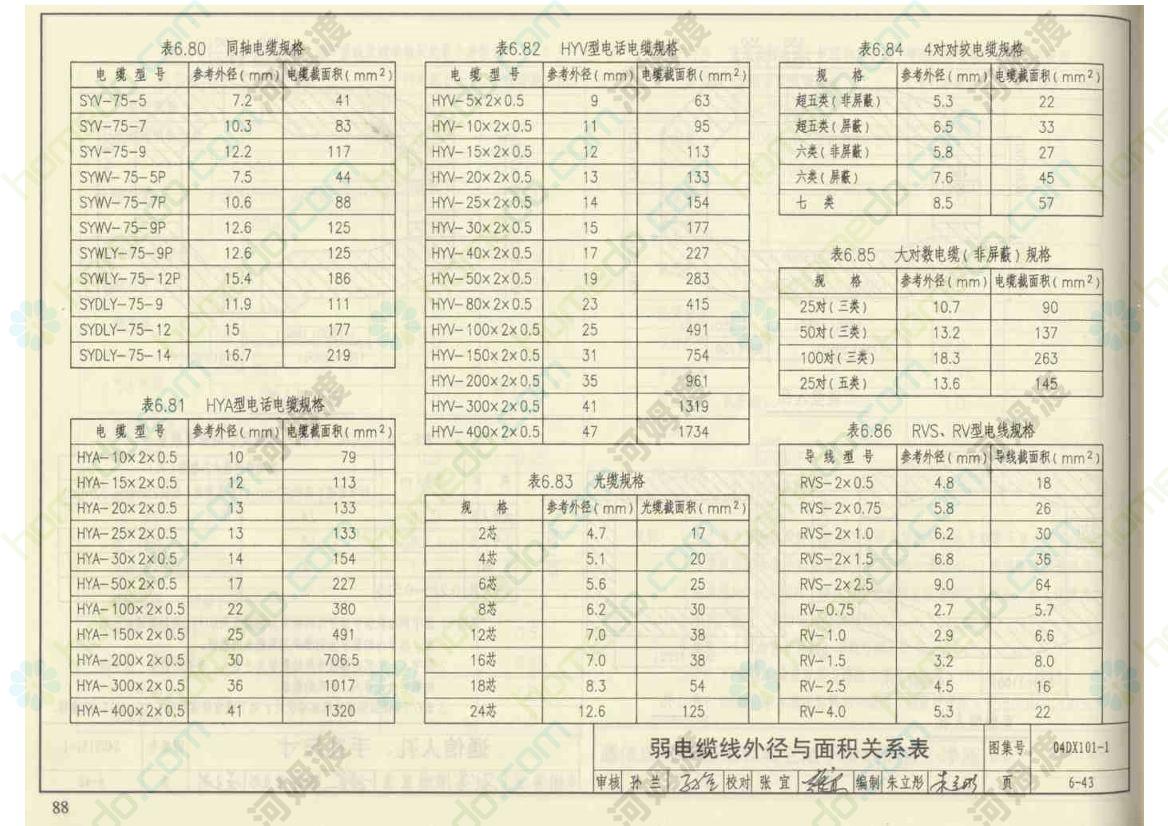 表6.80 同轴电缆规格
电缆型号 参考外径(mm) 电缆截面积(mm²)
SYV-75-5 7.2 41
SYV-75-7 10.3 83
SYV-75-9 12.2 117
SYWV-75-5P 7.5 44
SYWV-75-7P 10.6 88
SYWV-75-9P 12.6 125
SYWLY-75-9P 12.6 125
SYWLY-75-12P 15.4 186
SYDLY-75-9 11.9 111
SYDLY-75-12 15 177
SYDLY-75-14 16.7 219
表6.81 HYA型电话电缆规格
电缆型号 参考外径(mm) 电缆截面积(mm²)
HYA-10×2×0.5 10 79
HYA-15×2×0.5 12 113
HYA-20×2×0.5 13 133
HYA-25×2×0.5 13 133
HYA-30×2×0.5 14 154
HYA-50×2×0.5 17 227
HYA-100×2×0.5 22 380
HYA-150×2×0.5 25 491
HYA-200×2×0.5 30 706.5
HYA-300×2×0.5 36 1017
HYA-400×2×0.5 41 1320
表6.82 HYV型电话电缆规格
电缆型号 参考外径(mm) 电缆截面积(mm²)
HYV-5×2×0.5 9 63
HYV-10×2×0.5 11 95
HYV-15×2×0.5 12 113
HYV-20×2×0.5 13 133
HYV-25×2×0.5 14 154
HYV-30×2×0.5 15 177
HYV-40×2×0.5 17 227
HYV-50×2×0.5 19 283
HYV-80×2×0.5 23 415
HYV-100×2×0.5 25 491
HYV-150×2×0.5 31 754
HYV-200×2×0.5 35 961
HYV-300×2×0.5 41 1319
HYV-400×2×0.5 47 1734
表6.83 光缆规格
规格 参考外径(mm) 光缆截面积(mm²)
2芯 4.7 17
4芯 5.1 20
6芯 5.6 25
8芯 6.2 30
12芯 7.0 38
16芯 7.0 38
18芯 8.3 54
24芯 12.6 125
表6.84 4对对绞电缆规格
规格 参考外径(mm) 电缆截面积(mm²)
超五类(非屏蔽) 5.3 22
超五类(屏蔽) 6.5 33
六类(非屏蔽) 5.8 27
六类(屏蔽) 7.6 45
七类 8.5 57
表6.85 大对数电缆(非屏蔽)规格
规格 参考外径(mm) 电缆截面积(mm²)
25对(三类) 10.7 90
50对(三类) 13.2 137
100对(三类) 18.3 263
25对(五类) 13.6 145
表6.86 RVS、RV型电线规格
导线型号 参考外径(mm) 导线截面积(mm²)
RVS-2×0.5 4.8 18
RVS-2×0.75 5.8 26
RVS-2×1.0 6.2 30
RVS-2×1.5 6.8 36
RVS-2×2.5 9.0 64
RV-0.75 2.7 5.7
RV-1.0 2.9 6.6
RV-1.5 3.2 8.0
RV-2.5 4.5 16
RV-4.0 5.3 22
弱电缆线外径与面积关系表 图集号 04DX101-1
审核 孙兰 校对 张宜 编制 朱立彤 朱立彤 页 6-43
88
河姆渡
homedo.com